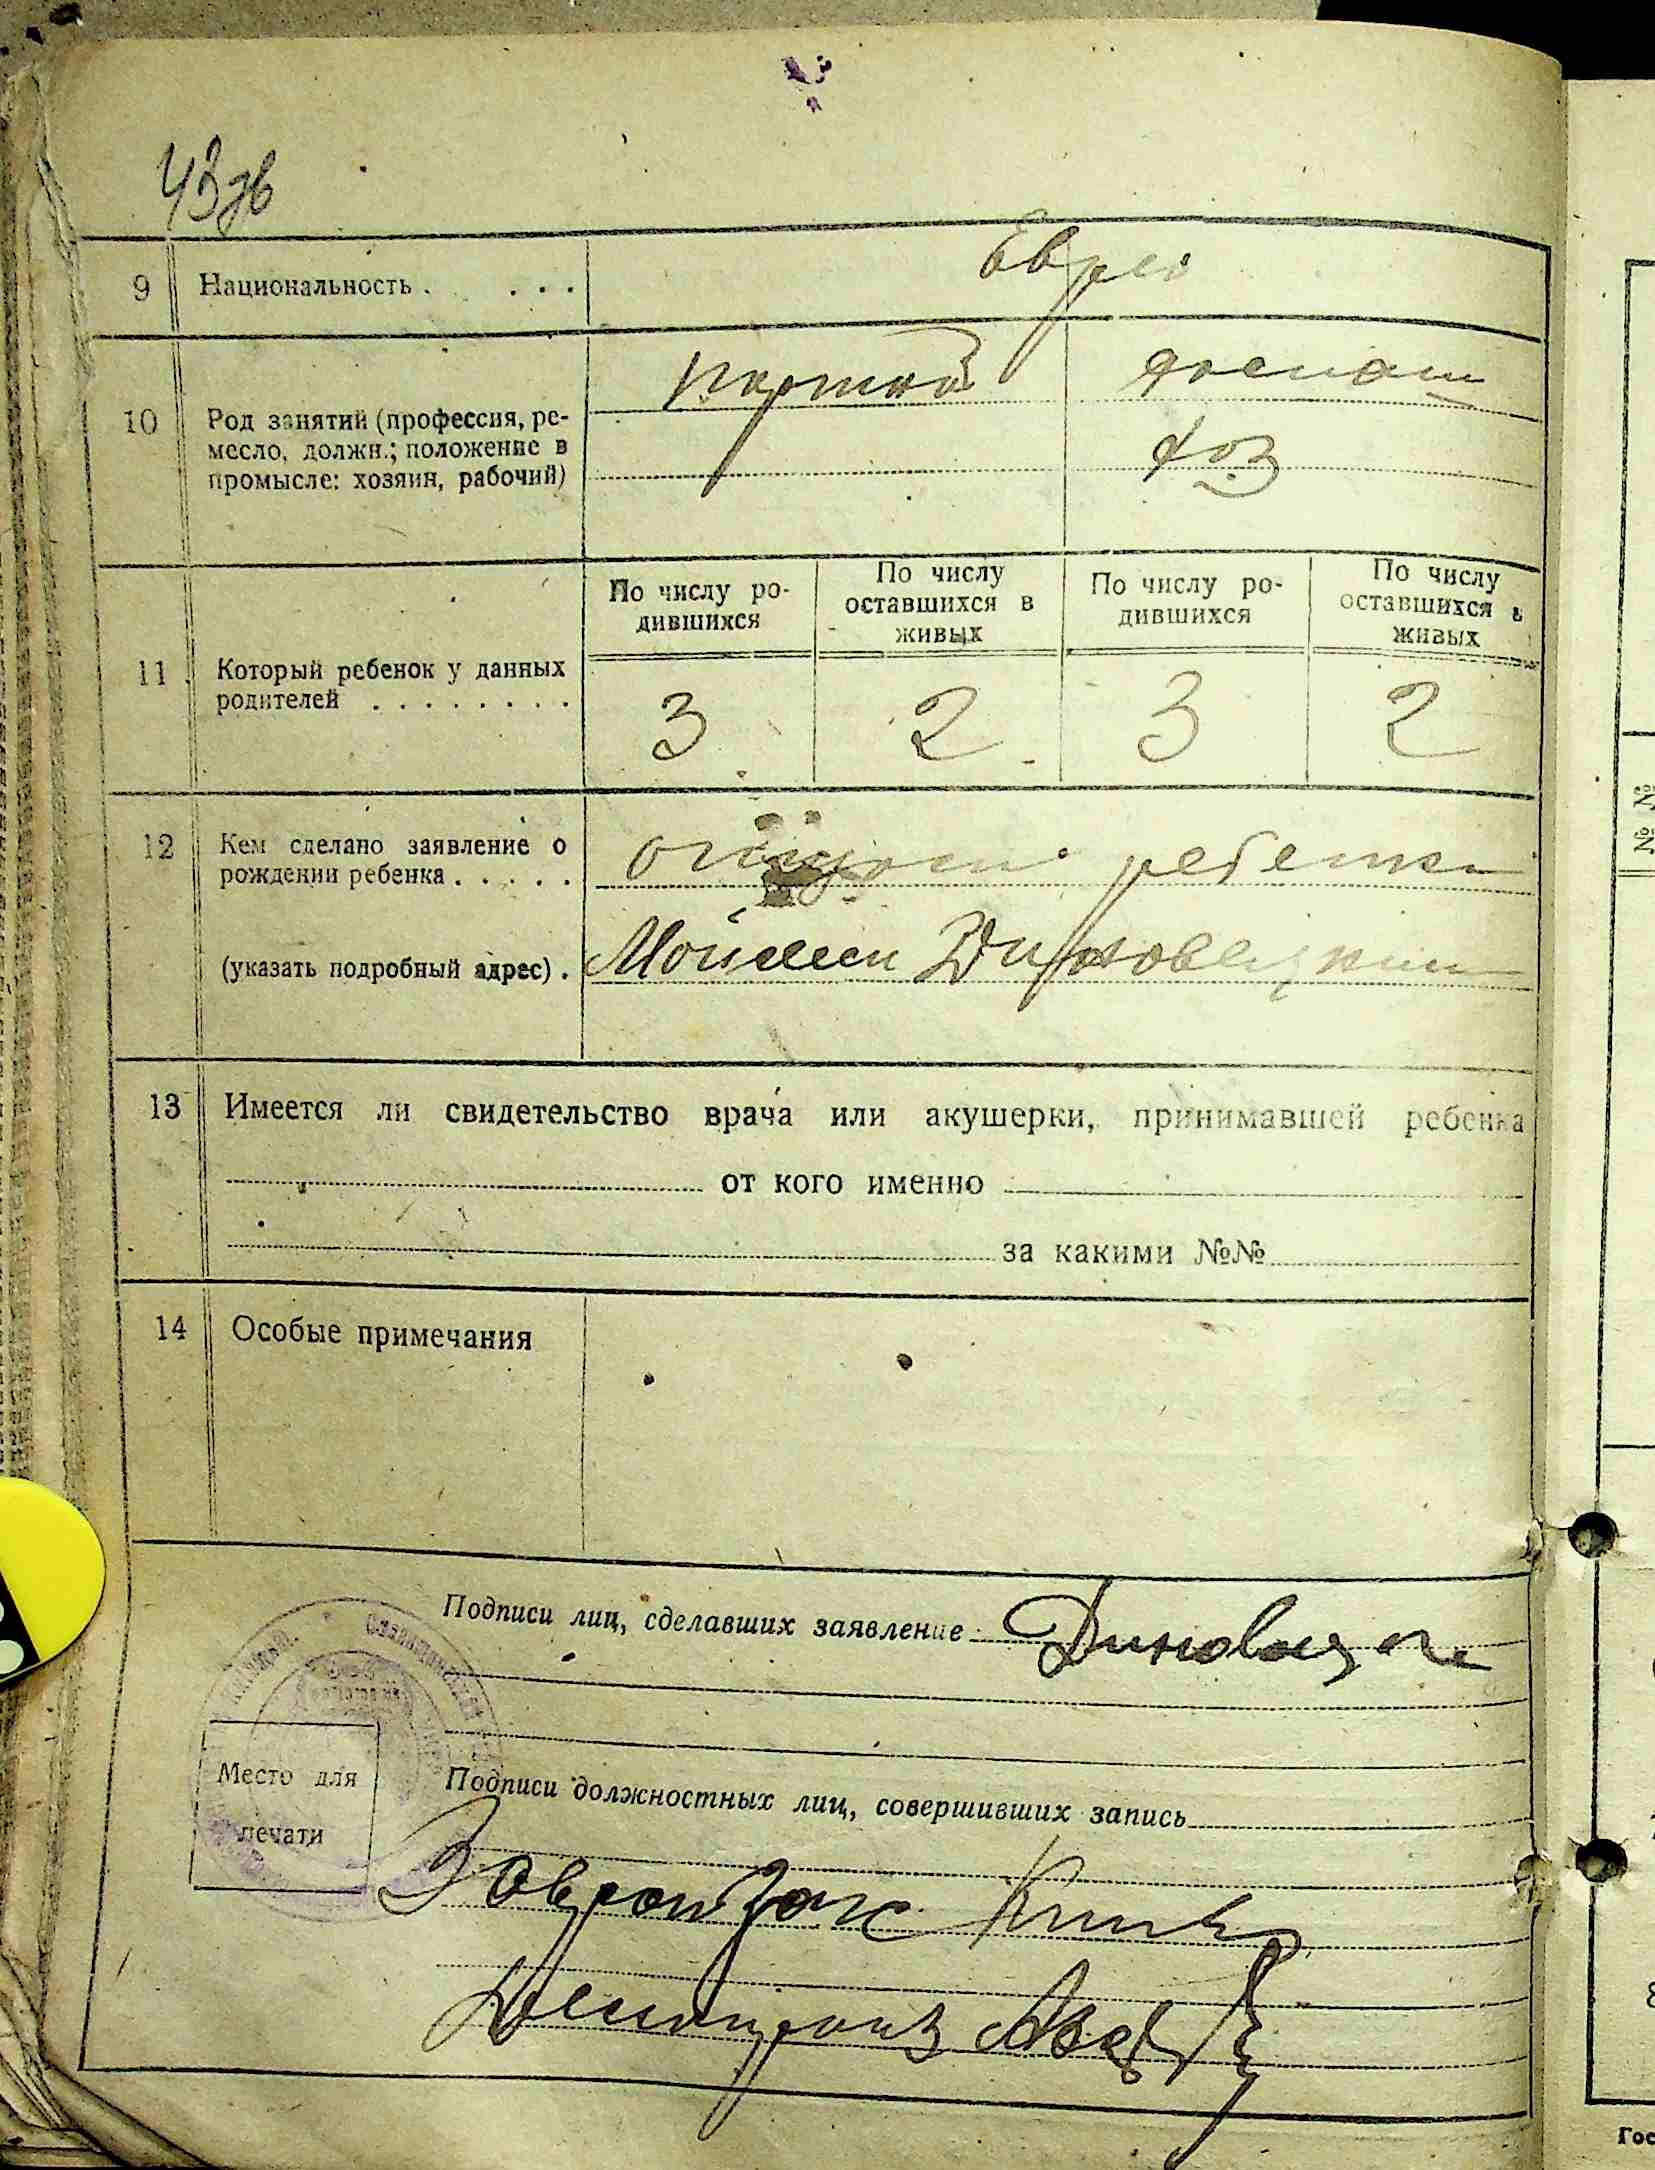 43зв
9 Национальность . . . . Евреи
10 Род занятий (профессия, ре-
месло, должн.; положение в
промысле: хозяин, рабочий)
портной домаш
хоз
11 Который ребенок у данных
родителей . . . . . . . .
По числу ро-
дившихся
По числу
оставшихся в
живых
По числу ро-
дившихся
По числу
оставшихся в
живых
3 2 3 2
12 Кем сделано заявление о
рождении ребенка . . . . .
(указать подробный адрес) .
отцом ребенка
Моисеем Диновецким
13 Имеется ли свидетельство врача или акушерки, принимавшей ребенка
от кого именно
за какими №№
14 Особые примечания
Подписи лиц, сделавших заявление Диновецк
Место для
печати
Подписи должностных лиц, совершивших запись
№ №
Гос